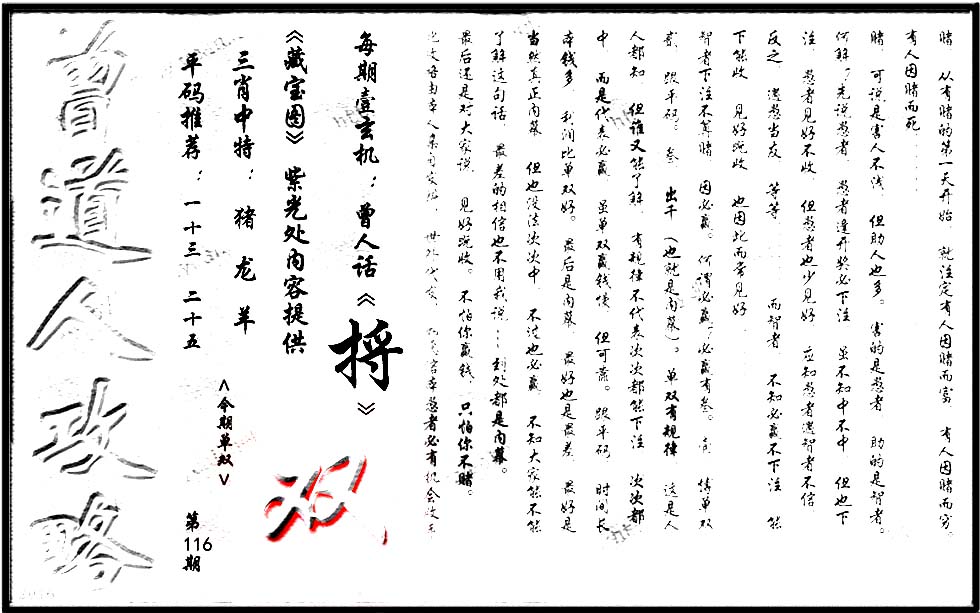 赌 从有赌的第一天开始 就注定有人因赌而富 有人因赌而穷。
有人因赌而死......
赌 可说是害人不浅 但助人也多。害的是愚者 助的是智者。
何解?先说愚者 愚者逢开奖必下注 虽不知中不中 但也下
注 愚者见好不收 但愚者也少见好 应知愚者遇智者不信
反之 遇愚当友 等等 而智者 不知必赢不下注 能
下能收 见好就收 也因此而常见好
智者下注不算赌 因必赢。何谓必赢?必赢有叁。 单双
贰 跟平码。叁 出千(也就是内幕)。单双有规律 这是人
人都知 但谁又能了解 有规律不代表次次都能下注 次次都
中 而是代表必赢 虽单双赢钱慢 但可靠。跟平码 时间长
本钱多 利润比单双好。最后是内幕 最好也是最差 最好是
当然真正内幕 但也没法次次中 不过也必赢 不知大家能不能
了解这句话 最差的相信也不用我说...到处都是内幕。
最后还是对大家说 见好就收。不怕你赢钱,只怕你不赌。
愚者必有机会收
每期壹玄机:曾人话《捋》
《藏宝图》紫光处内容提供
三肖中特: 猪 龙 羊
平码推荐:一十三 二十五
<今期单双>
双
第116期
曾道人攻略